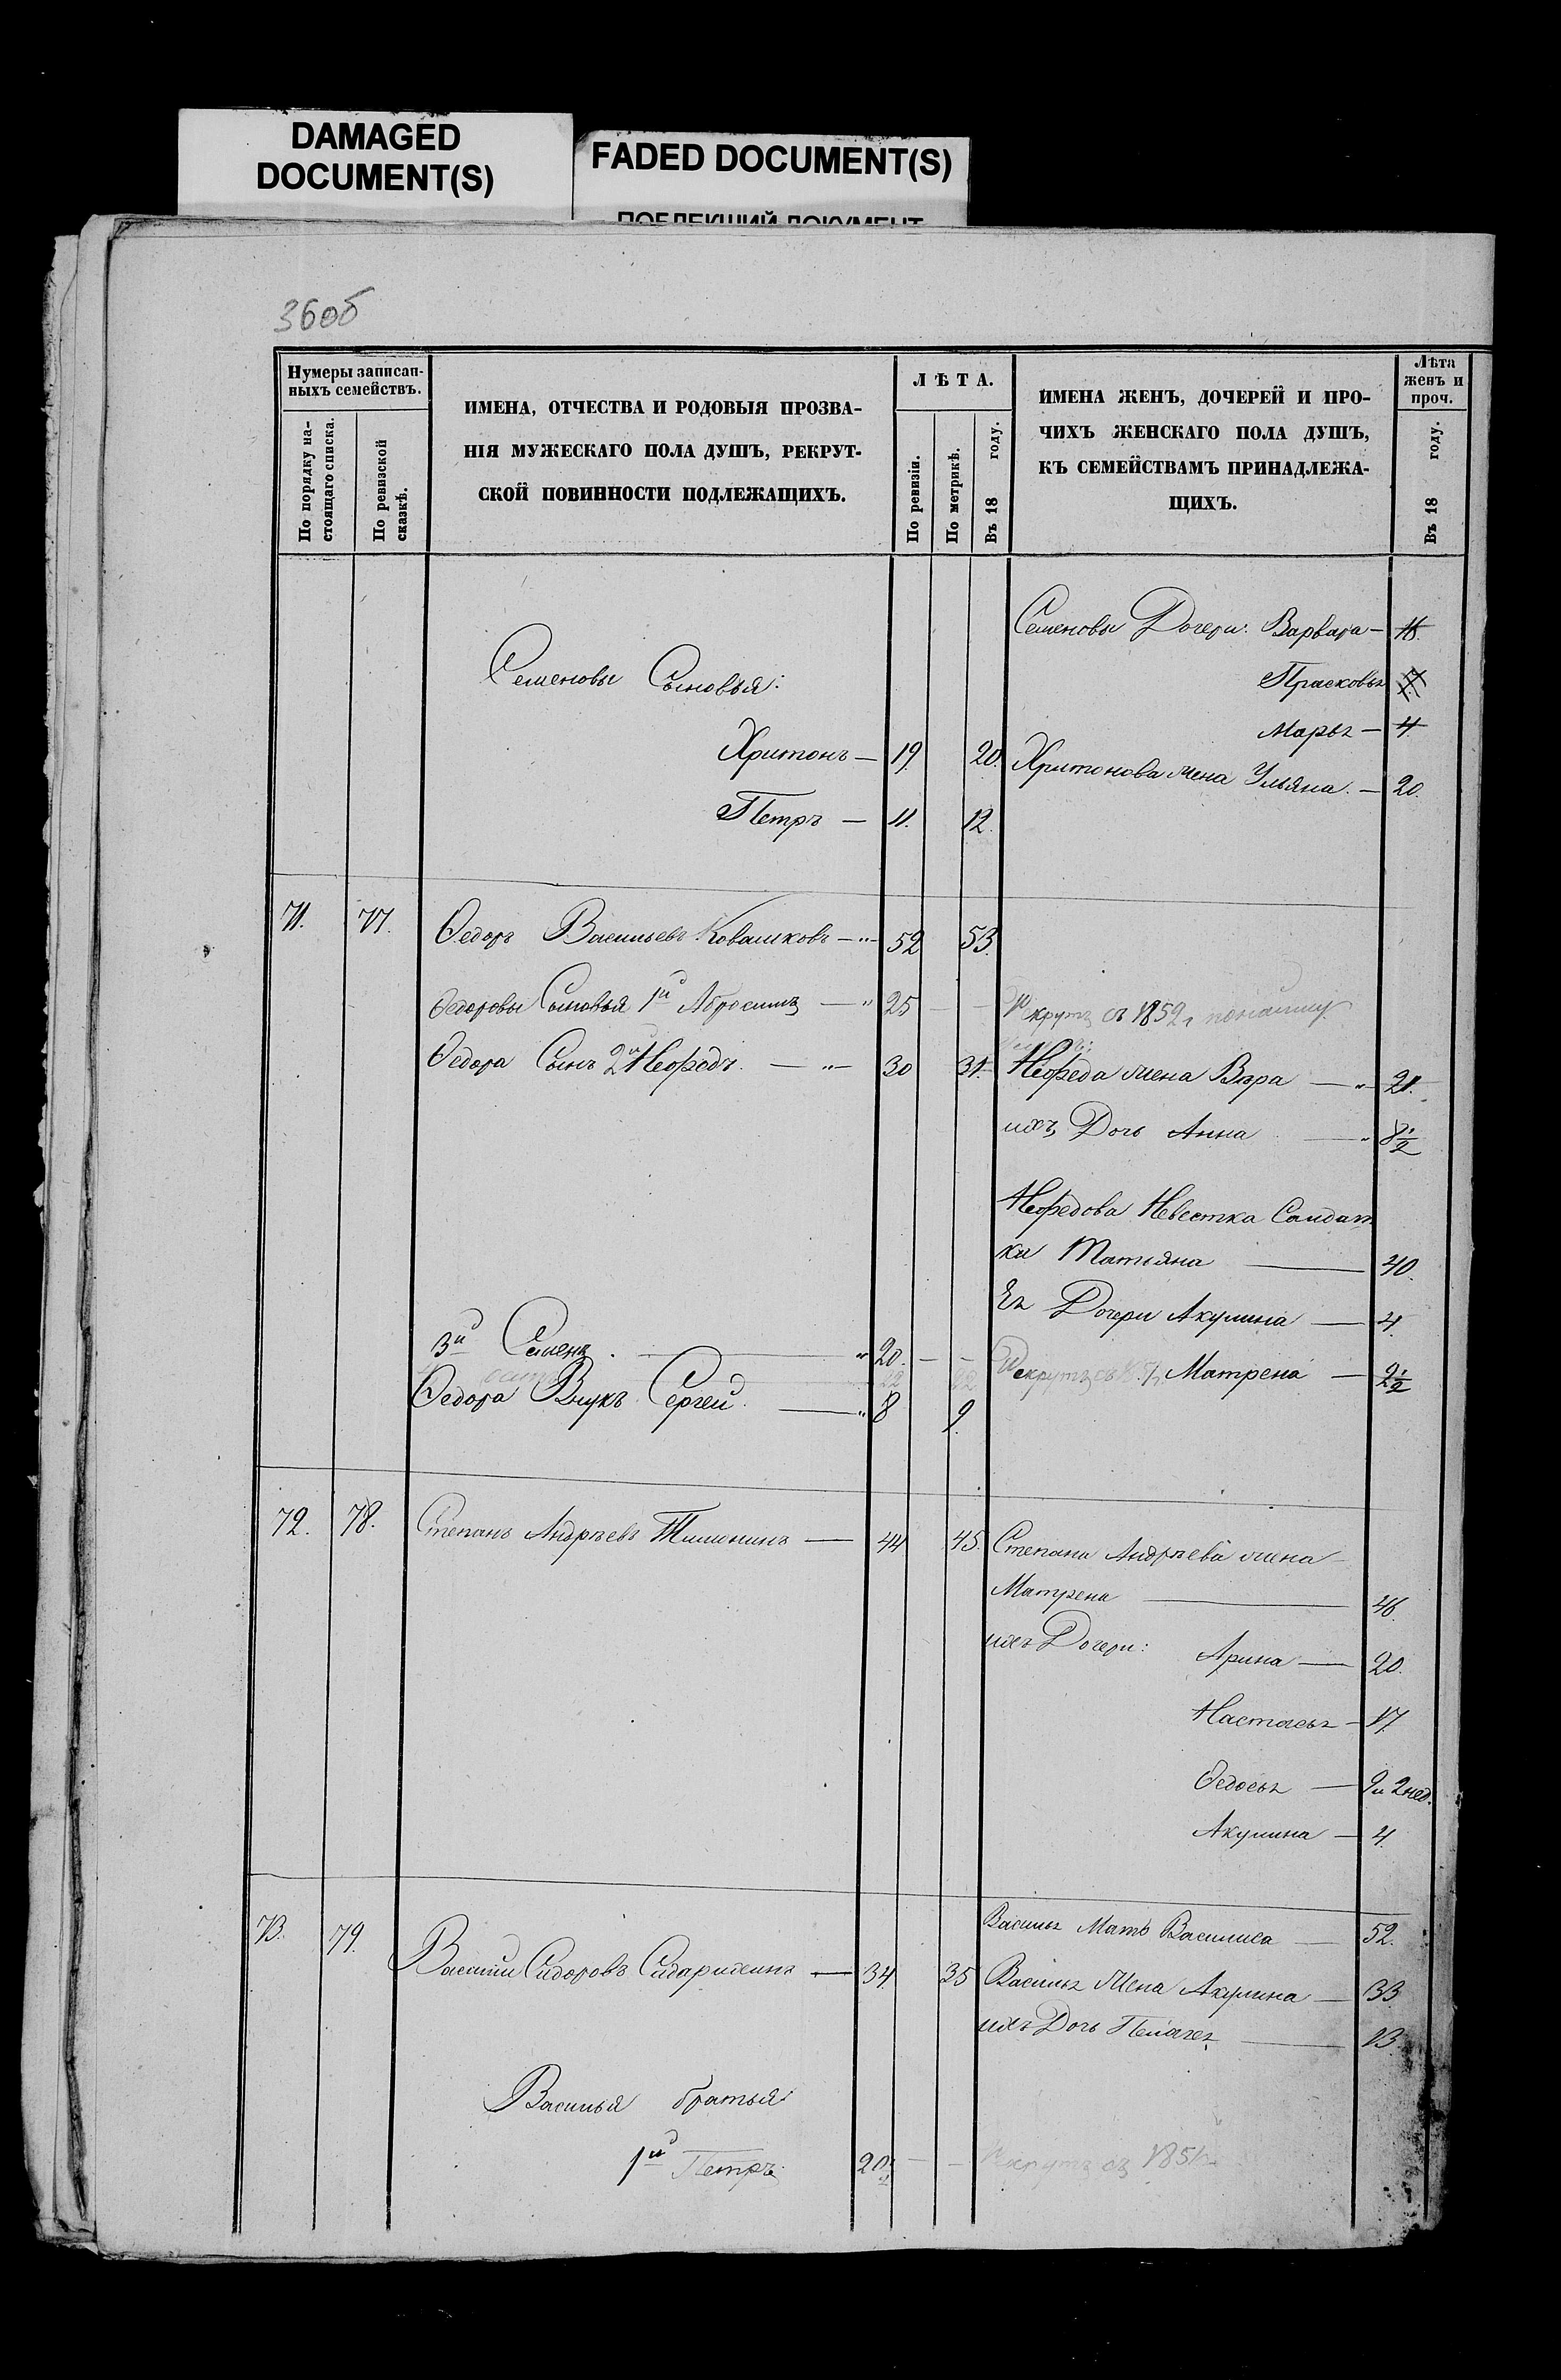 DAMAGED
DOCUMENT(S)
FADED DOCUMENT(S)
ПОБЛЕКШИЙ ДОКУМЕНТ
36об
Нумеры записан-
ныхъ семействъ.
По порядку на-
стоящаго списка.
По ревизской
сказкѣ.
ИМЕНА, ОТЧЕСТВА И РОДОВЫЯ ПРОЗВА-
НІЯ МУЖЕСКАГО ПОЛА ДУШЪ, РЕКРУТ-
СКОЙ ПОВИННОСТИ ПОДЛЕЖАЩИХЪ.
ЛѢТА.
По ревизіи.
По метрикѣ.
Въ 18 году.
ИМЕНА ЖЕНЪ, ДОЧЕРЕЙ И ПРО-
ЧИХЪ ЖЕНСКАГО ПОЛА ДУШЪ,
КЪ СЕМЕЙСТВАМЪ ПРИНАДЛЕЖА-
ЩИХЪ.
Лѣта
женъ и
проч.
Въ 18 году.
Семеновы Дочери: Варвара —
Семеновы Сыновья:
Прасковья
Марья — 4
Хритонъ — 19. 20. Хритонова жена Ульяна. — 20.
Петръ — 11. 12.
71. 77. Ѳедоръ Васильевъ — 52 53.
Ѳедоровы Сыновья 1й Абросимъ — 25 — — Рекрутъ съ 1852
Ѳедора Сынъ 2й Нефедъ. — 30 31. Нефеда жена Вѣра — 21.
ихъ Дочь Анна — 8½
Нефедова Невестка Солдат
ка Татьяна — 40.
Ея Дочери Акулина — 4.
3й Семенъ. — 20. — — Рекрутъ Матрена — 2½
Ѳедора Внукъ Сергей. — 8 9.
72. 78. Степанъ Андрѣевъ — 44 45. Степана Андрѣева жена
Матрена — 46.
ихъ Дочери: Арина — 20.
Настасья — 17.
Ѳедосья — 9 и 2 нед.
Акулина — 4.
73. 79. Василья Мать Василиса — 52.
Василій Сидоровъ — 34. 35 Василья Жена Акулина — 33
ихъ Дочь Пелагея — 13.
Василья братья:
1й Петръ 20½ — — Рекрутъ съ